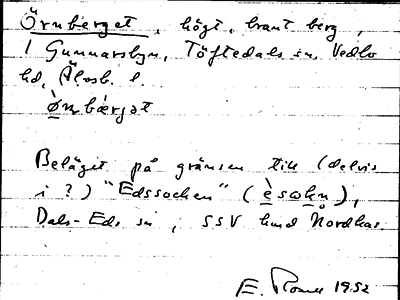 Örnberget, högt, brant berg,
1 Gunnarsbyn, Töftedals sn, Vedbo
hd, Älvsb. l.
ö̀rnbærjət
Beläget på gränsen till (delvis
i ?) "Edssocken" (è sωkn),
Dals-Eds sn, SSV hmd Nordkas.
E. 1952